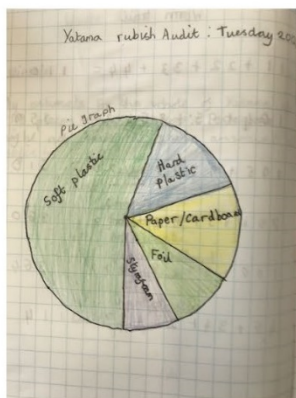 Yatama rubish Audit : Tuesday
Pie graph
Soft plastic
Hard
plastic
Paper/Cardboard
Foil